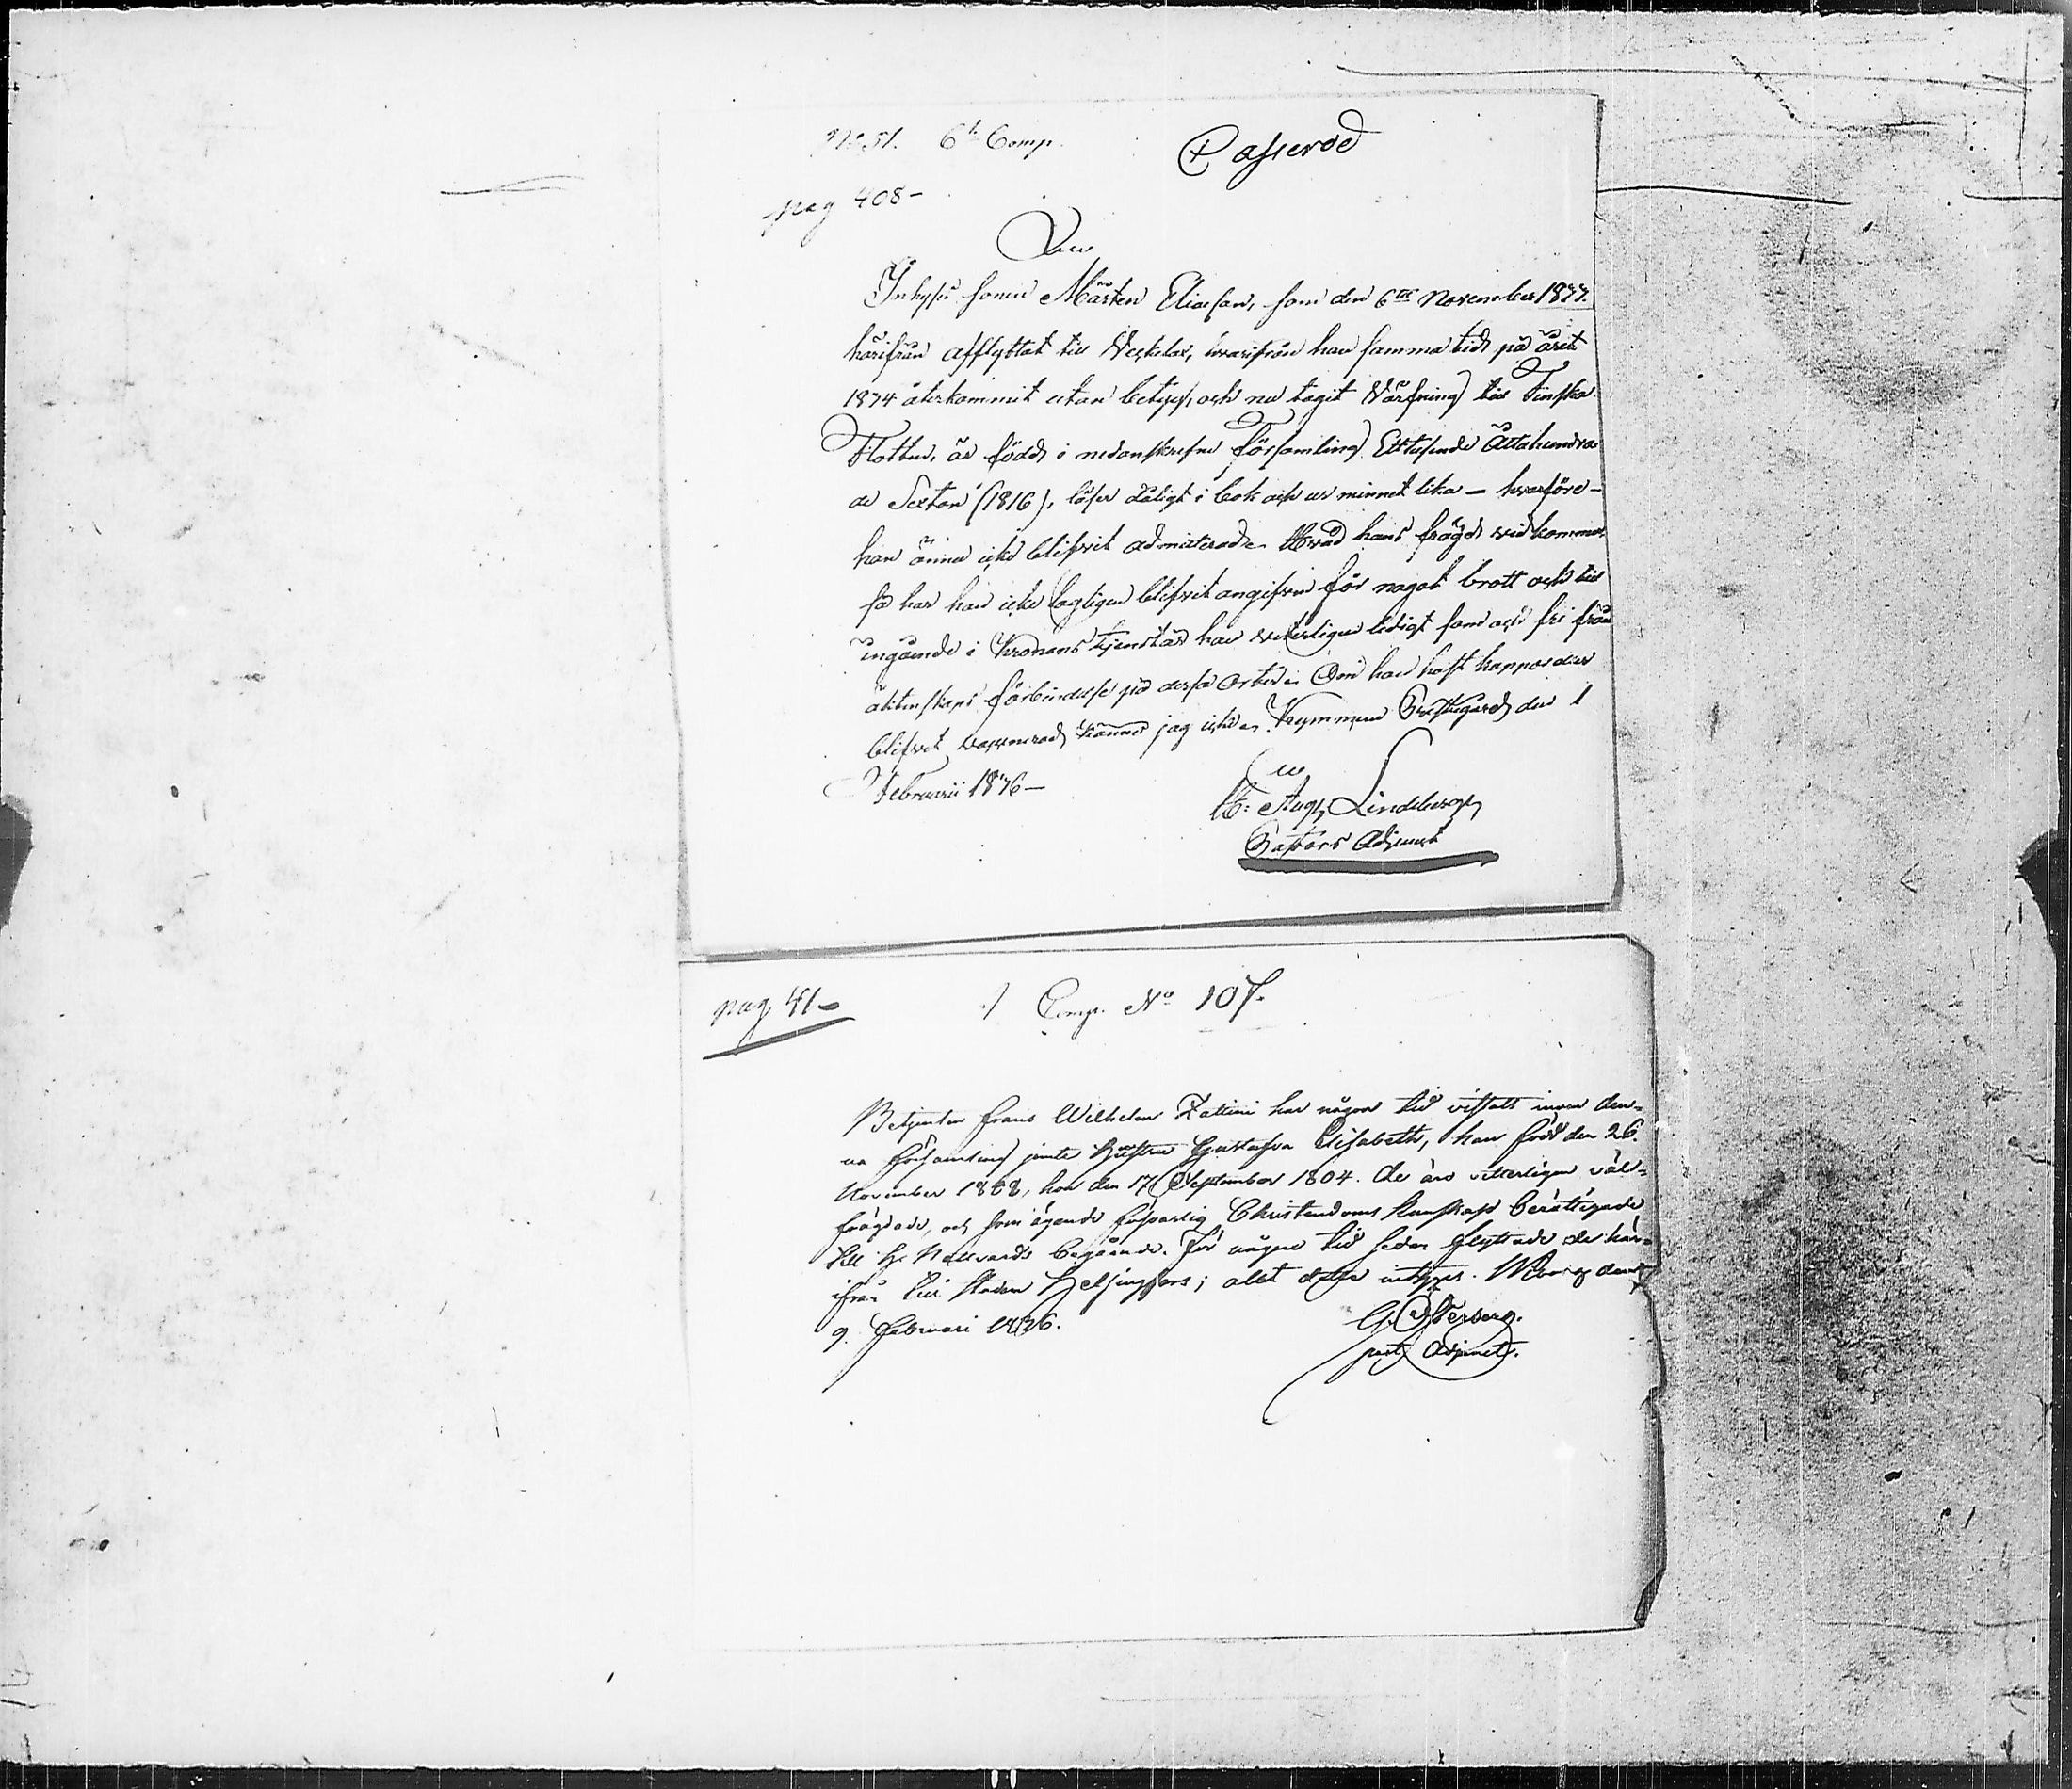 No 51. 6te Comp. Passerad
pag 408-
Inhyses sonen Mårten Eliasson, som den 6te November 1833.
härifrån afflyttat till Veckelax, hvarifrån han samma tid på året
1834 återkommit utan betyg, och nu tagit Värfning till Finska
Flottan, är född i nedanskrefne Församling Ettusende Åttahundra-
de Sexton (1816), läser dåligt i bok och ur minnet lika — hvarföre —
han ännu icke blifvit admitterad. Hvad hans frägd vidkommer
så har han icke lagligen blifvit angifven för något brott och till
ingående i Kronans tjenst är han veterligen ledigt som och fri från
äktenskaps förbindelse på dessa orter. Om han haft koppor eller
blifvit vaccinerad känner jag icke. Kymmene Prestegård den 1
Februarii 1836 —
Aug. Lindeberg
Pastors Adjunct
pag 41- 1 Comp. No 107.
Betjenten Frans Wilhelm Zattini har någon tid vistats inom den-
na församling jemte hustru Gustafva Elisabeth, han född den 26.
November 1808, hon den 17 September 1804. De äro vitterligen väl-
frägdade, och som ägande försvarlig Christendoms kunskap berättigade
till H. Nattvards begående. För någon tid sedan flyttade de här-
ifrån till staden Helsingfors; allt detta intygas. Wiborg den
9. Februari 1836.
G. Österberg.
past. Adjunct.